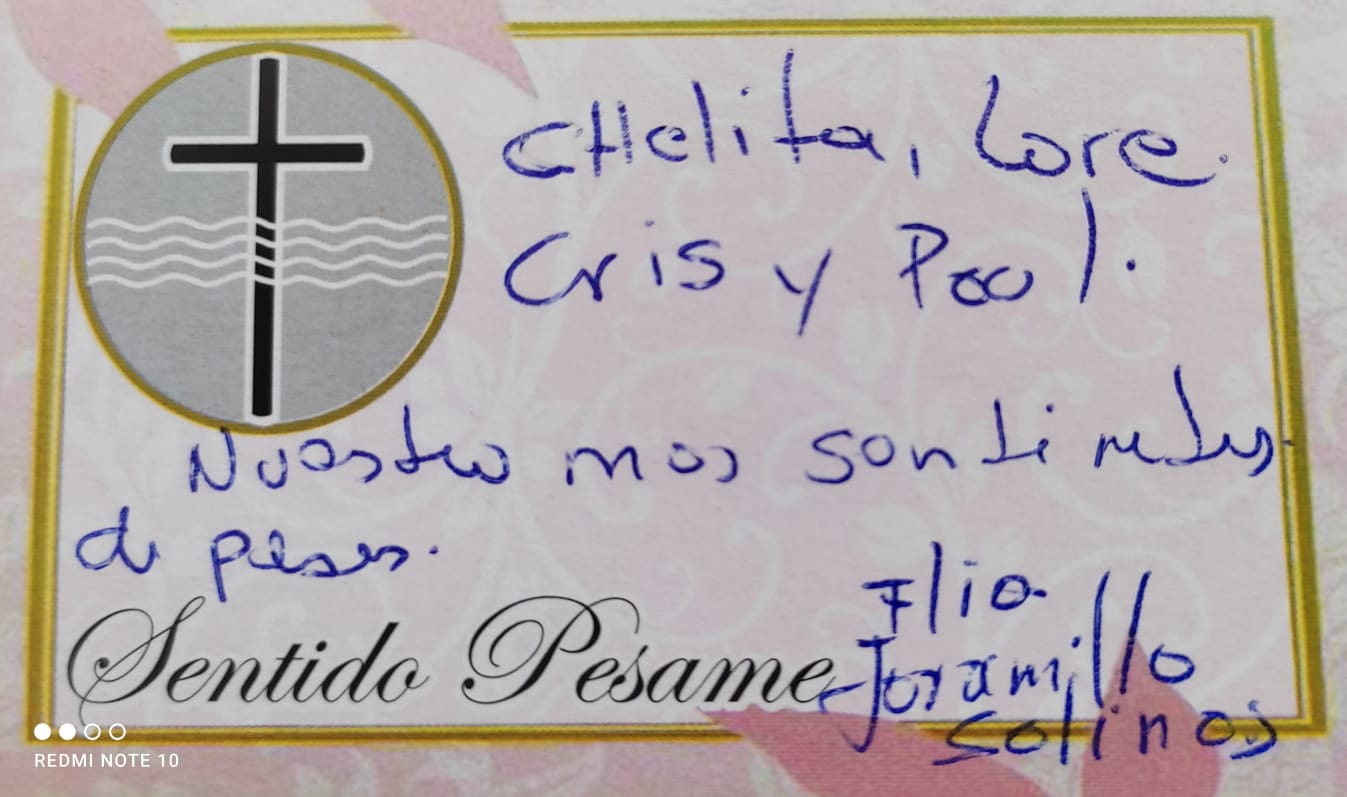 CHelita, Lore.
Cris y Paul.
Nuestro mas sentimetos
de pesar.
Sentido Pesame
Flia.
Jaramillo
Salinas
REDMI NOTE 10